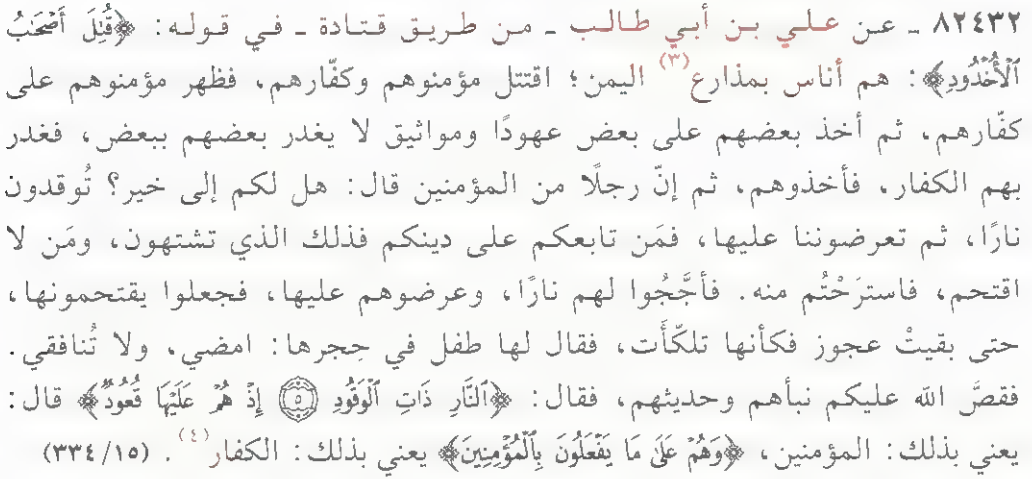 ٨٢٤٣٢ ـ عن علي بن أبي طالب ـ من طريق قتادة ـ في قوله: ﴿قُتِلَ أَصْحَٰبُ
ٱلْأُخْدُودِ﴾: هم أناس بمذارع(٣) اليمن؛ اقتتل مؤمنوهم وكفّارهم، فظهر مؤمنوهم على
كفّارهم، ثم أخذ بعضهم على بعض عهودًا ومواثيق لا يغدر بعضهم ببعض، فغدر
بهم الكفار، فأخذوهم، ثم إنّ رجلًا من المؤمنين قال: هل لكم إلى خير؟ تُوقدون
نارًا، ثم تعرضوننا عليها، فمَن تابعكم على دينكم فذلك الذي تشتهون، ومَن لا
اقتحم، فاسترَحْتُم منه. فأجَّجُوا لهم نارًا، وعرضوهم عليها، فجعلوا يقتحمونها،
حتى بقيتْ عجوز فكأنها تلكّأَت، فقال لها طفل في حِجرها: امضي، ولا تُنافقي.
فقصَّ الله عليكم نبأهم وحديثهم، فقال: ﴿ٱلنَّارِ ذَاتِ ٱلْوَقُودِ ۝٥ إِذْ هُمْ عَلَيْهَا قُعُودٌ﴾ قال:
يعني بذلك: المؤمنين، ﴿وَهُمْ عَلَىٰ مَا يَفْعَلُونَ بِٱلْمُؤْمِنِينَ﴾ يعني بذلك: الكفار(٤). (١٥/٣٣٤)